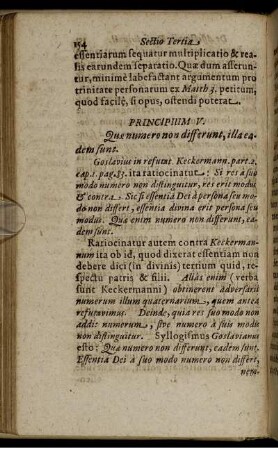 154 Sectio Tertia
essentiarum sequatur multiplicatio & rea-
lis earundem separatio. Quæ dum asserun-
tur, minimè labefactant argumentum pro
trinitate personarum ex Matth 3. petitum,
quod facilè, si opus, ostendi poterat.
PRINCIPIUM V.
Quæ numero non differunt, illa ea-
dem sunt.
Goslavius in refutat. Keckermann. part. 2.
cap. 1. pag. 53. ita ratiocinatur: Si res a suo
modo numero non distinguitur, res erit modus
& contra. Sic si essentia Dei à persona seu mo-
do non differt, essentia divina erit persona seu
modus. Quæ enim numero non differunt, ea-
dem sunt.
Ratiocinatur autem contra Keckerman-
num ita ob id, quod dixerat essentiam non
debere dici (in divinis) tertium quid, re-
spectu patris & filii. Aliàs enim (verba
sunt Keckermanni) obtinerent adversarii
numerum illum quaternarium, quem antea
refutavimus. Deinde, quia res suo modo non
addit numerum, sive numero à suis modis
non distinguitur. Syllogismus Goslavii
esto: Quæ numero non differunt, eadem sunt.
Essentia Dei à suo modo numero non differt,